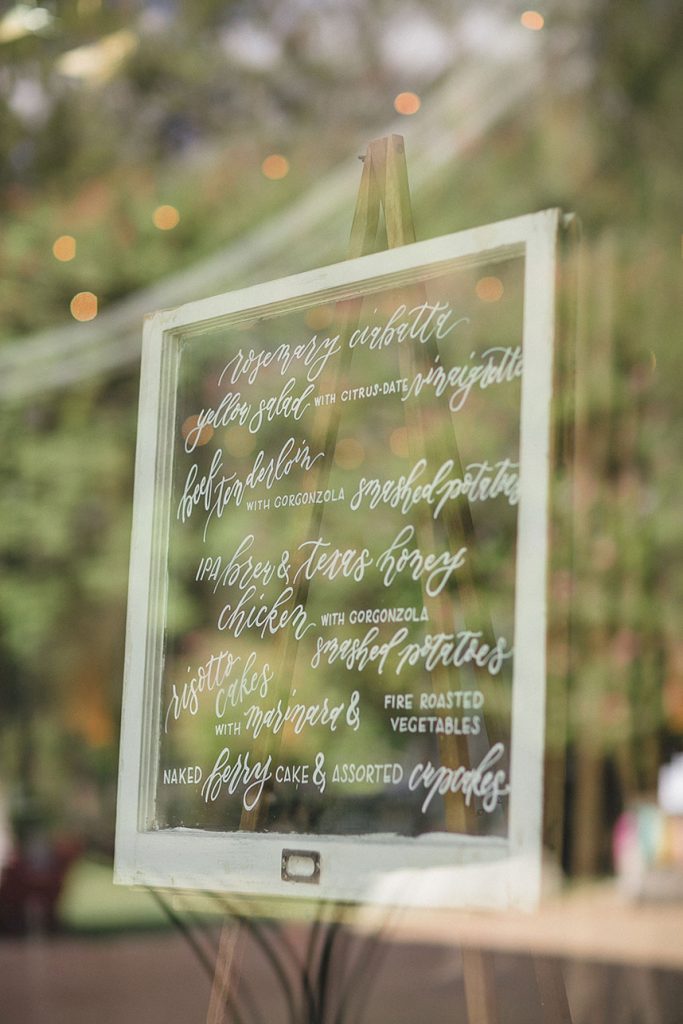 rosemary ciabatta
yellow salad WITH CITRUS-DATE vinaigrette
beef tenderloin
WITH GORGONZOLA smashed potatoes
IPA brew & texas honey
chicken WITH GORGONZOLA
smashed potatoes
risotto cakes
WITH marinara & FIRE ROASTED VEGETABLES
NAKED berry CAKE & ASSORTED cupcakes